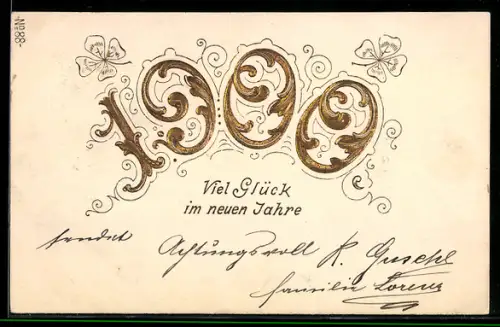 No 88-
1900
Viel Glück
im neuen Jahre
sendet Achtungsvoll K.
Familie Lorenz